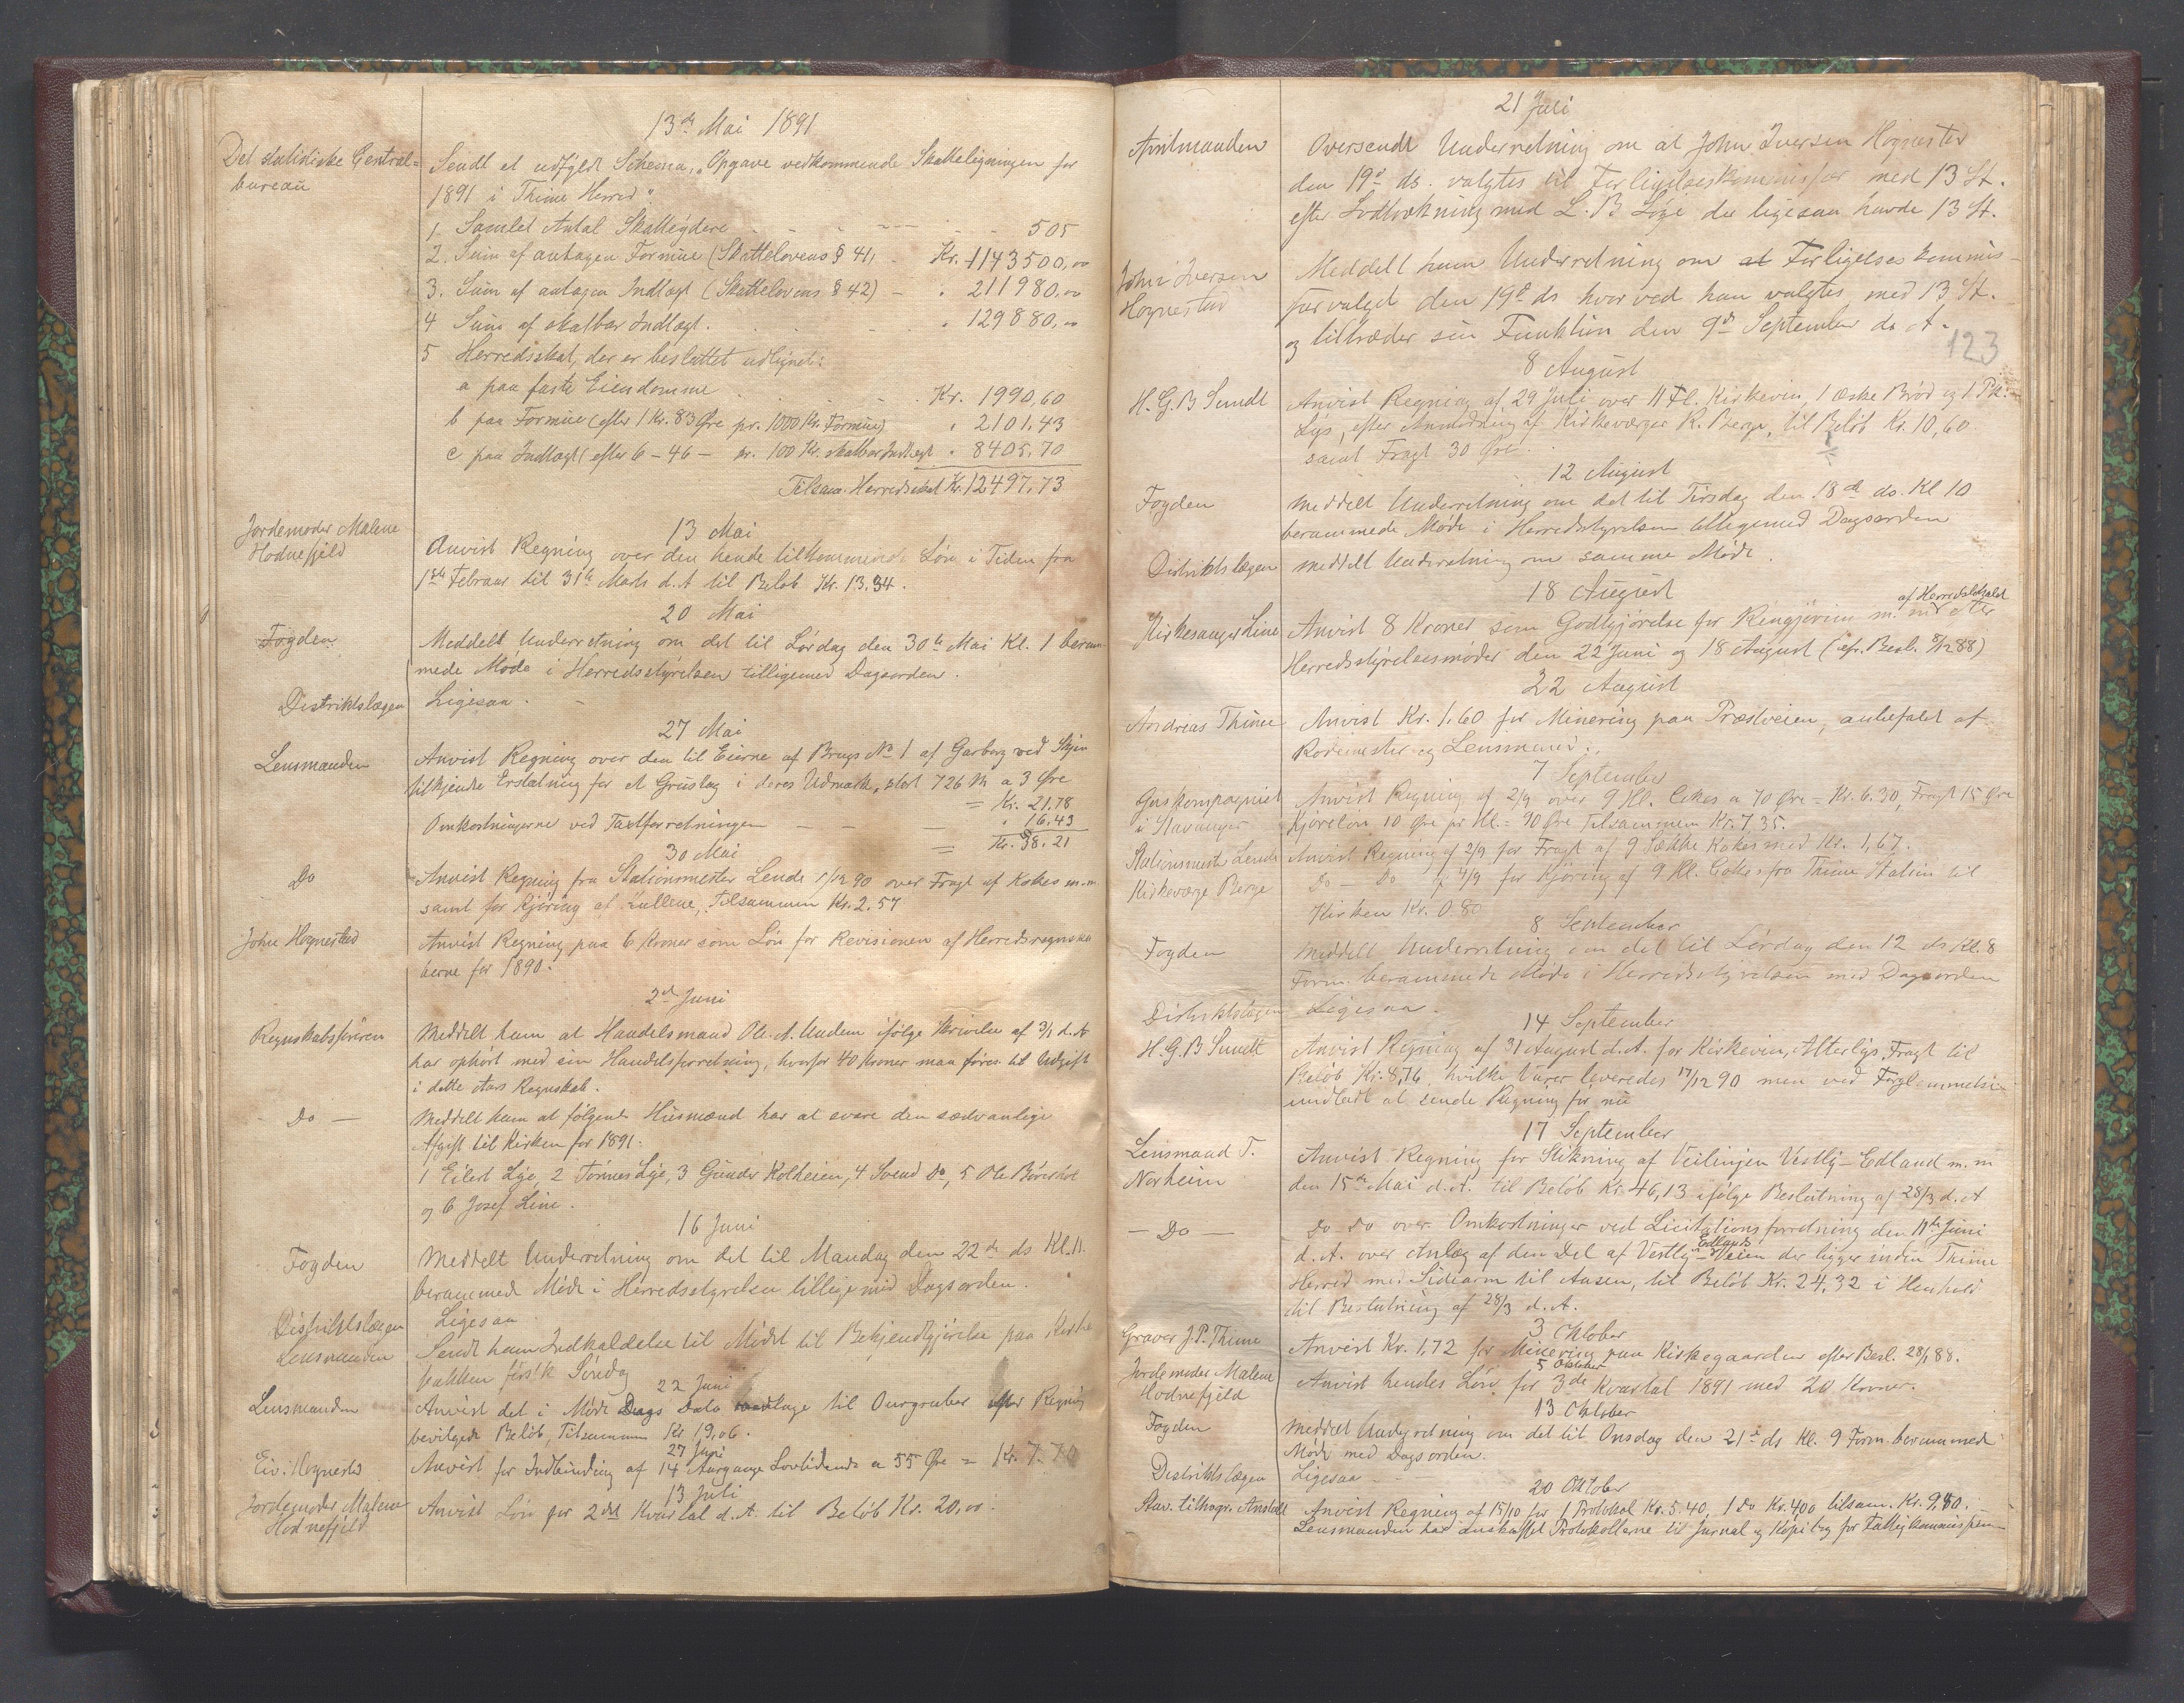 13de Mai 1891
Det statistiske Central=
bureau
Sendt et udfyldt Schema, "Opgave vedkommende Skatteligningen for
1891 i Thime Herred".
1 Samlet Antal Skatteydere 505
2. Sum af antagen Formue (Skattelovens § 41) Kr. 1143500,00
3. Sum af antagen Indtægt (Skattelovens § 42) " 211980,00
4 Sum af skatbar Indtægt. " 129880,00
5 Herredsskat, der er besluttet udlignet:
a paa faste Eiendomme Kr. 1990,60
b paa Formue (efter 1 Kr. 83 Øre pr. 1000 Kr. Formue) " 2101,43
c paa Indtægt (efter 6 - 46 - pr. 100 Kr. skatbar Indtægt " 8405,70
Tilsam. Herredsskat Kr. 12497,73
13 Mai
Jordemoder Malene
Hodnefjeld
Anvist Regning over den hende tilkommende Løn i Tiden fra
1ste Februar til 31te Marts d. A til Beløb Kr. 13.34.
20 Mai
Fogden
Meddelt Underretning om det til Lørdag den 30te Mai Kl. 1 beram-
mede Møde i Herredsstyrelsen tilligemed Dagsorden.
Distriktslægen Ligesaa.
27 Mai
Lensmanden
Anvist Regning over den til Eierne af Brugs No 1 af Garborg ved Skjøn
tilkjendte Erstatning for et Grustag i deres Udmark, stort 726 M a 3 Øre
= Kr. 21.78
Omkostningerne ved Taxtforretningen " 16.43
= Kr. 38.21
30 Mai
Do
Anvist Regning fra Stationsmester Lende 1/12 90 over Fragt af Kokes m.m.
samt for Kjøring af Kullene, Tilsammen Kr. 2.57
John Hognestad
Anvist Regning paa 6 Kroner som Løn for Revisionen af Herredsregnska
berne for 1890.
2d Juni
Regnskabsføreren
Meddelt ham at Handelsmand Ole A. Undem ifølge Skrivelse af 3/1 d. A
har ophørt med sin Handelsforretning, hvorfor 40 Kroner maa føres til Udgift
i dette Aars Regnskab.
Do —
Meddelt ham at følgende Husmænd har at svare den sædvanlige
Afgift til Kirken for 1891.
1 Eilert Lye, 2 Tønnes Lye, 3 Gunder Kotheien, 4 Svend Do, 5 Ole
og 6 Josef Line.
16 Juni
Fogden
Meddelt Underretning om det til Mandag den 22de ds Kl. 11.
berammede Møde i Herredsstyrelsen tilligemed Dagsorden.
Distriktslægen Ligesaa
Lensmanden
Sendt ham Indkaldelse til Mødet til Bekjendtgjørelse paa Kirke
bakken førstk Søndag
22 Juni
Lensmanden
Anvist det i Møde Dags Dato til efter Regning
bevilgede Beløb, Tilsammen Kr 19,06.
27 Juni
Eiv. Hognestad
Anvist for Indbinding af 14 Aargange Lovtidende a 55 Øre = Kr. 7.70
13 Juli
Jordemoder Malene
Hodnefjeld
Anvist Løn for 2det Kvartal d. A. til Beløb Kr. 20,00.
21 Juli
Amtmanden
Oversendt Underretning om at John Iversen Hognestad
den 19de ds. valgtes til Forligelseskommissær med 13 St.
efter Lodtrækning med L. B Lye der ligesaa havde 13 St.
John Iversen
Hognestad
Meddelt ham Underretning om at Forligelseskommis-
ærvalget den 19de ds hvorved han valgtes med 13 St.
og tiltræder sin Funktion den 9de September d. A.
123
8 August
H. G. B Sundt
Anvist Regning af 29 Juli over 11 Fl. Kirkevin, 1 æske Brød og 1 Pk.
Lys, efter Anmodning af Kirkeværger R. Berge, til Beløb Kr. 10,60.
samt Fragt 30 Øre.
12 August
Fogden
Meddelt Underretning om det til Tirsdag den 18de ds. Kl 10
berammede Møde i Herredsstyrelsen tilligemed Dagsorden
Distriktslægen meddelt Underretning om samme Møde.
18 August
Kirkesanger Line
Anvist 8 Kroner som Godtgjørelse for Rengjøring m.m. af Herredslokalet efter
Herredsstyrelsesmøder den 22 Juni og 18 August (cfr. Besl. 8/12 88)
22 August
Andreas Thime
Anvist Kr. 1.60 for Minering paa Præstveien, anbefalet af
Rodemester og Lensmand.
7 September
Gaskompagniet
i Stavanger
Anvist Regning af 2/9 over 9 Hl. Cokes a 70 Øre = Kr. 6.30, Fragt 15 Øre
Kjøreløn 10 Øre pr Hl. = 90 Øre Tilsammen Kr. 7,35.
Stationsmester Lende
Anvist Regning af 2/9 for Fragt af 9 Sække Kokes med Kr. 1,67.
Kirkeværge Berge
Do — Do af 4/9 for Kjøring af 9 Hl. Cokes fra Thime Station til
Kirken Kr. 0.80
8 September
Fogden
Meddelt Underretning om det til Lørdag den 12 ds Kl. 8
Form. berammede Møde i Herredsstyrelsen med Dagsorden
Distriktslægen Ligesaa.
14 September
H. G. B Sundt
Anvist Regning af 31 August d. A. for Kirkevin, Alterlys, Fragt til
Beløb Kr. 8,76, hvilke Varer leveredes 17/12 90 men ved Forglemmelse
undladt at sende Regning før nu
17 September
Lensmand T.
Norheim
Anvist Regning for Stikning af Veilinjen Vestly – Edland m. m
den 15de Mai d. A. til Beløb Kr. 46,13 ifølge Beslutning af 28/3 d. A
— Do —
Do Do over Omkostninger ved Licitationsforretning den 11te Juni
d. A. over Anlæg af den Del af Vestly – Edlands Veien der ligger inden Thime
Herred med Sidearm til Aasen, til Beløb Kr. 24,32 i Henhold
til Beslutning af 28/3 d. A.
3 Oktober
Graver J. P. Thime
Anvist Kr. 1,72 for Minering paa Kirkegaarden efter Besl. 28/1 88.
5 Oktober
Jordemoder Malene
Hodnefjeld
Anvist hendes Løn for 3die Kvartal 1891 med 20 Kroner.
13 Oktober
Fogden
Meddelt Underretning om det til Onsdag den 21de ds Kl. 9 Form. berammede
Møde med Dagsorden.
Distriktslægen Ligesaa
20 Oktober
Stav. lithogr. Anstalt
Anvist Regning af 15/10 for 1 Protokol Kr. 5.40, 1 do Kr. 4,00 tilsam. Kr. 9,40.
Lensmanden har anskaffet Protokollerne til Jurnal og Kopibog for Fattigkommissionen